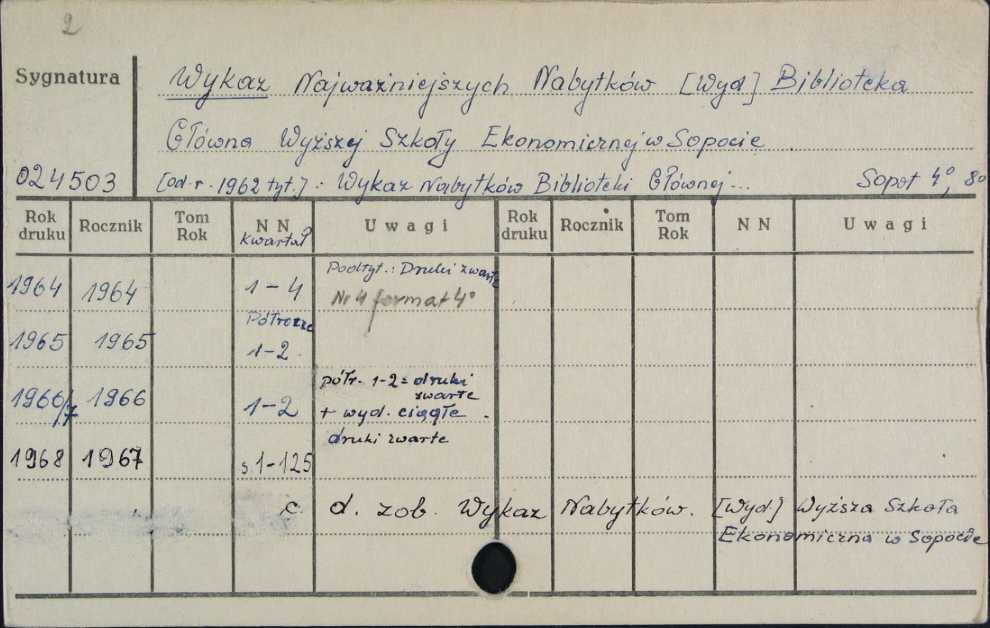 2
Sygnatura
Wykaz Najważniejszych Nabytków [Wyd.] Biblioteka
Główna Wyższej Szkoły Ekonomicznej w Sopocie
024503 [od r. 1962 tyt.] : Wykaz Nabytków Biblioteki Głównej... Sopot 4°, 8°
Rok druku Rocznik Tom Rok NN kwartał Uwagi Rok druku Rocznik Tom Rok NN Uwagi
Podtyt.: Druki zwarte
1964 1964 1-4 Nr 4 format 4°
Półrocze
1965 1965 1-2
półr. 1-2 = druki
zwarte
1966/7 1966 1-2 + wyd. ciągłe
druki zwarte
1968 1967 s. 1-125
c. d. zob. Wykaz Nabytków. [Wyd.] Wyższa Szkoła
Ekonomiczna w Sopocie